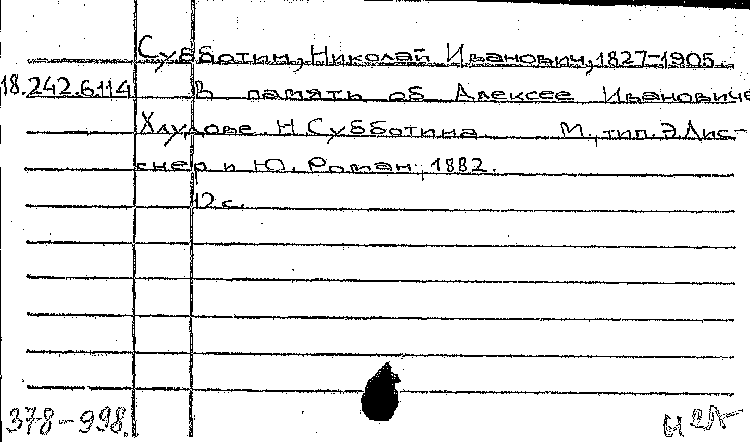 Субботин, Николай Иванович, 1827-1905.
18.242.6.114 В память об Алексее Ивановиче
Хлудове. Н. Субботина М., тип. Э. Лис-
снер и Ю. Роман, 1882.
12 с.
378-998.